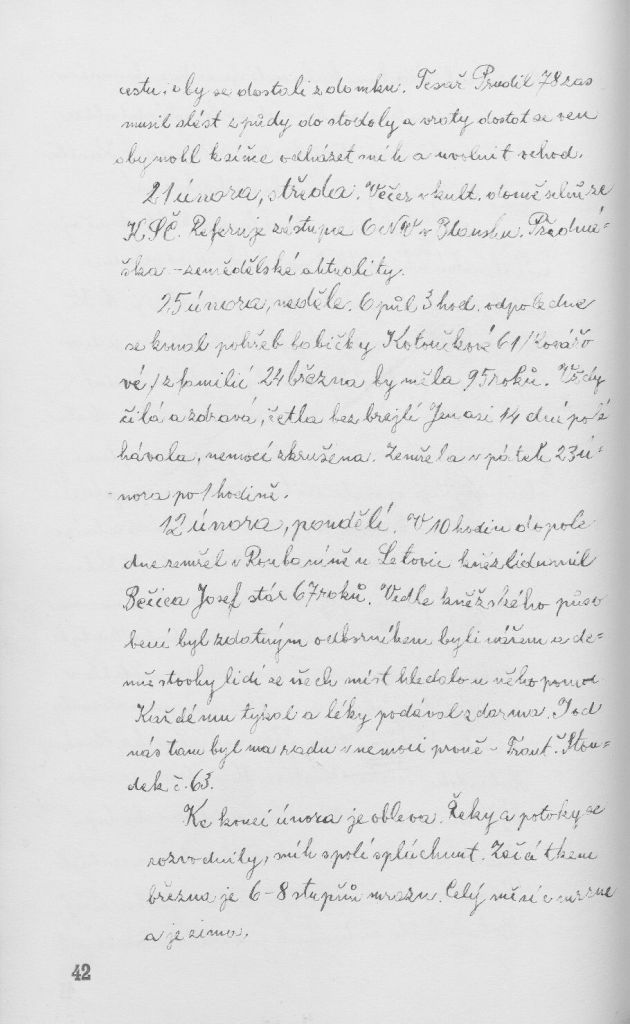 cestu, aby se dostali z domku. Tesař Prudil 78 zas
musil slézt z půdy do stodoly a vraty dostat se ven
aby mohl k síňce odházet sníh a uvolnit vchod.
21 února, středa. Večer v kult. domě schůze
KSČ. Referuje zástupce ONV v Blansku. Předná=
ška - zemědělské aktuality.
25 února, neděle. O půl 3 hod. odpoledne
se konal pohřeb babičky Kotoučkové 61 /Kovářo
vé/ z familií 24 března by měla 95 roků. Vždy
čilá a zdravá, četla bez brejlí Jen asi 14 dní pole
hávala, nemocí zkrušena. Zemřela v pátek 23 ú=
nora po 1 hodině.
12 února, pondělí. V 10 hodin dopole
dne zemřel v Roubanině u Letovic kněz lidumil
Bečica Josef stár 67 roků. Vedle kněžského půso
bení byl zdatným odborníkem bylinářem a de=
ně stovky lidí ze všech míst hledalo u něho pomoc
Každému tykal a léky podával zdarma. I od
nás tam byl na radu v nemoci prvně - Frant. Stou=
dek č. 63.
Ke konci února je obleva. Řeky a potoky se
rozvodnily, sníh s polí splúchnut. Začátkem
března je 6-8 stupňů mrazu. Celý měsíc mrzne
a je zima.
42